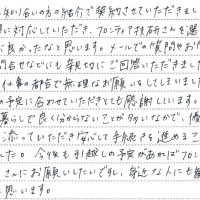 知り合いの方の紹介で契約させていただきまし
に対応していただき、フロンティア技研さんを選
に良かったなと思います。メールでの質問やお
問合せなどにも親切にご回答いただきました
仕事の都合で無理なお願いもしてしまいまし
の予定に合わせていただきとても感謝しています。
暮らしで良く分からないことが多いなかで、
添っていただき安心して手続きを進めるこ
た。今後も引越しの予定があればフロン
さんにお願いしたいですし、身近な人にも
思います。